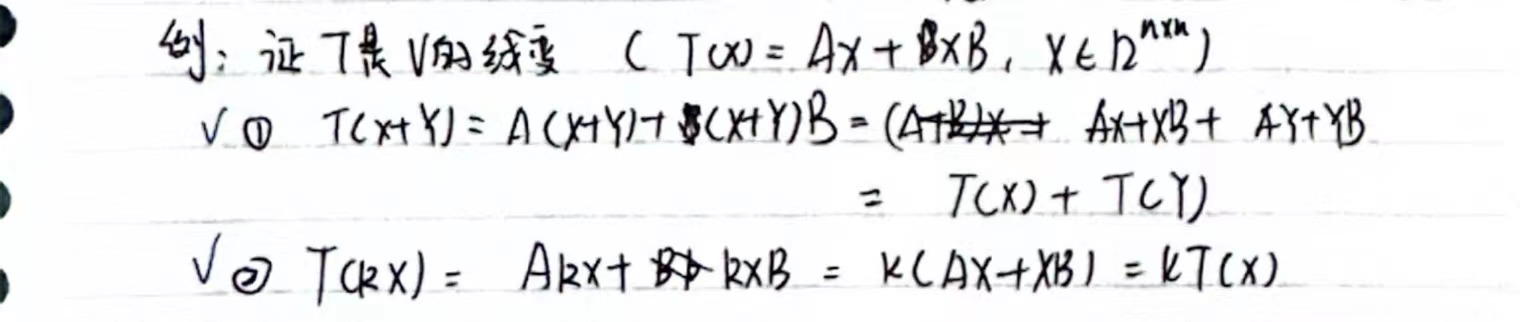 例: 证 T是 V的线变 ( T(X) = AX + XB, X∈R^{n×n} )
√ ① T(X+Y) = A(X+Y) + (X+Y)B = AX+XB + AY+YB
= T(X) + T(Y)
√ ② T(kX) = AkX + kXB = k(AX+XB) = kT(X)